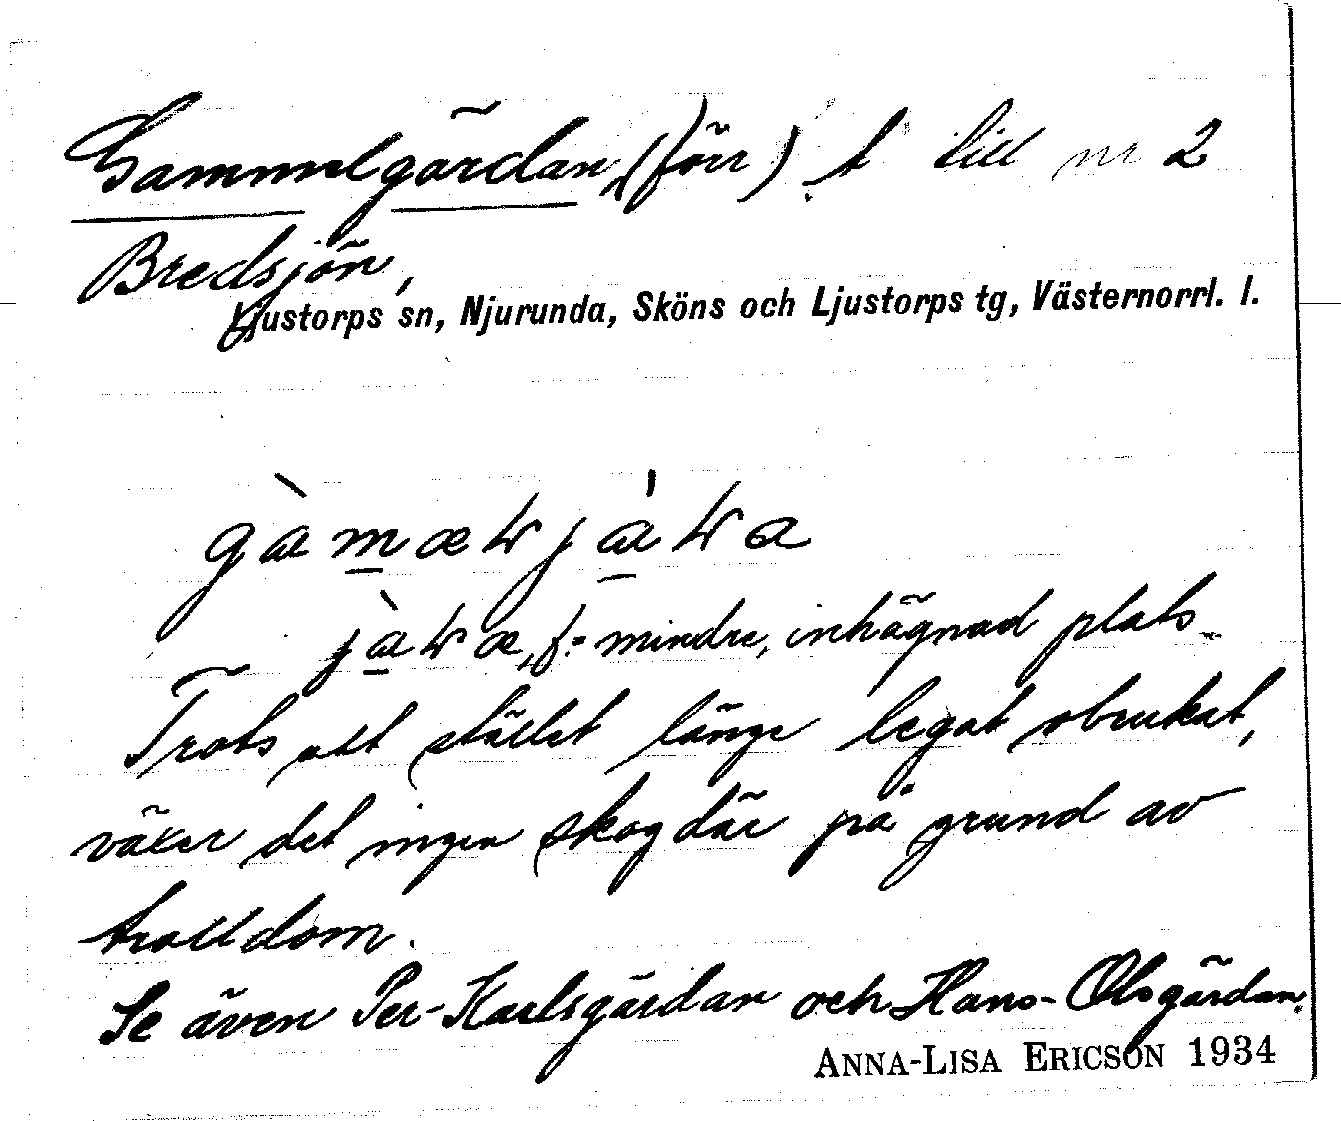 Gammelgärdan, (förr) t till nr 2
Bredsjön,
Ljustorps sn, Njurunda, Sköns och Ljustorps tg, Västernorrl. l.
f.= mindre, inhägnad plats.
Trots att stället länge legat obrukat,
växer det ingen skog där på grund av
trolldom.
Se även Per-Karlsgärdan och Hans-Olsgärdan.
ANNA-LISA ERICSON 1934